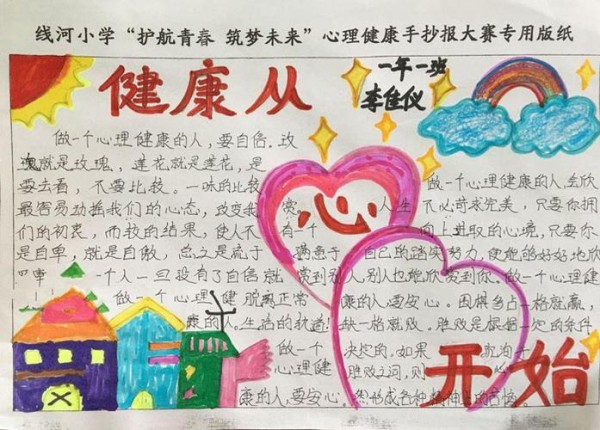 线河小学“护航青春 筑梦未来”心理健康手抄报大赛专用版纸
健康从心开始
一年一班
李佳仪
做一个心理健康的人,要自信。玫
瑰就是玫瑰,莲花就是莲花,是
要去看,不要比较。一味的比较
最容易动摇我们的心态,改变我
们的初衷,而较的结果,使人不
是自卑,就是自傲,总之是流于
一个人一旦没有了自信就
做一个心理健康的人,会欣
赏 人生 不必苛求完美,只要你拥
有一个 向上进取的心境,只要你
满意于 自己的踏实努力,使能够好好地欣
赏到别人,别人也能欣赏到你。做一个心理健
康的人要安心。围棋多占一格就赢,
缺一格就败。胜败是根据一定的条件
决定的。如果
胜败之间,则
做一个心理健 脱离正常
康的人 生活的轨道!
做一个
心理健
康的人,要安心。